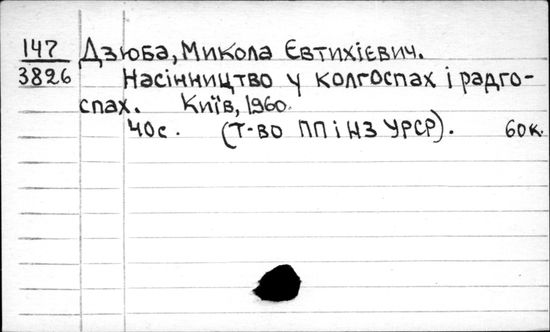 147 Дзюба, Микола Євтихієвич.
3826 Насінництво у колгоспах і радго-
спах. Київ, 1960.
40с. (Т-во ПП і НЗ УРСР). 60к.